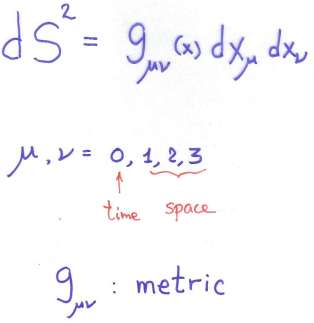 dS² = g_μν(x) dx_μ dx_ν
μ, ν = 0, 1, 2, 3
time space
g_μν : metric